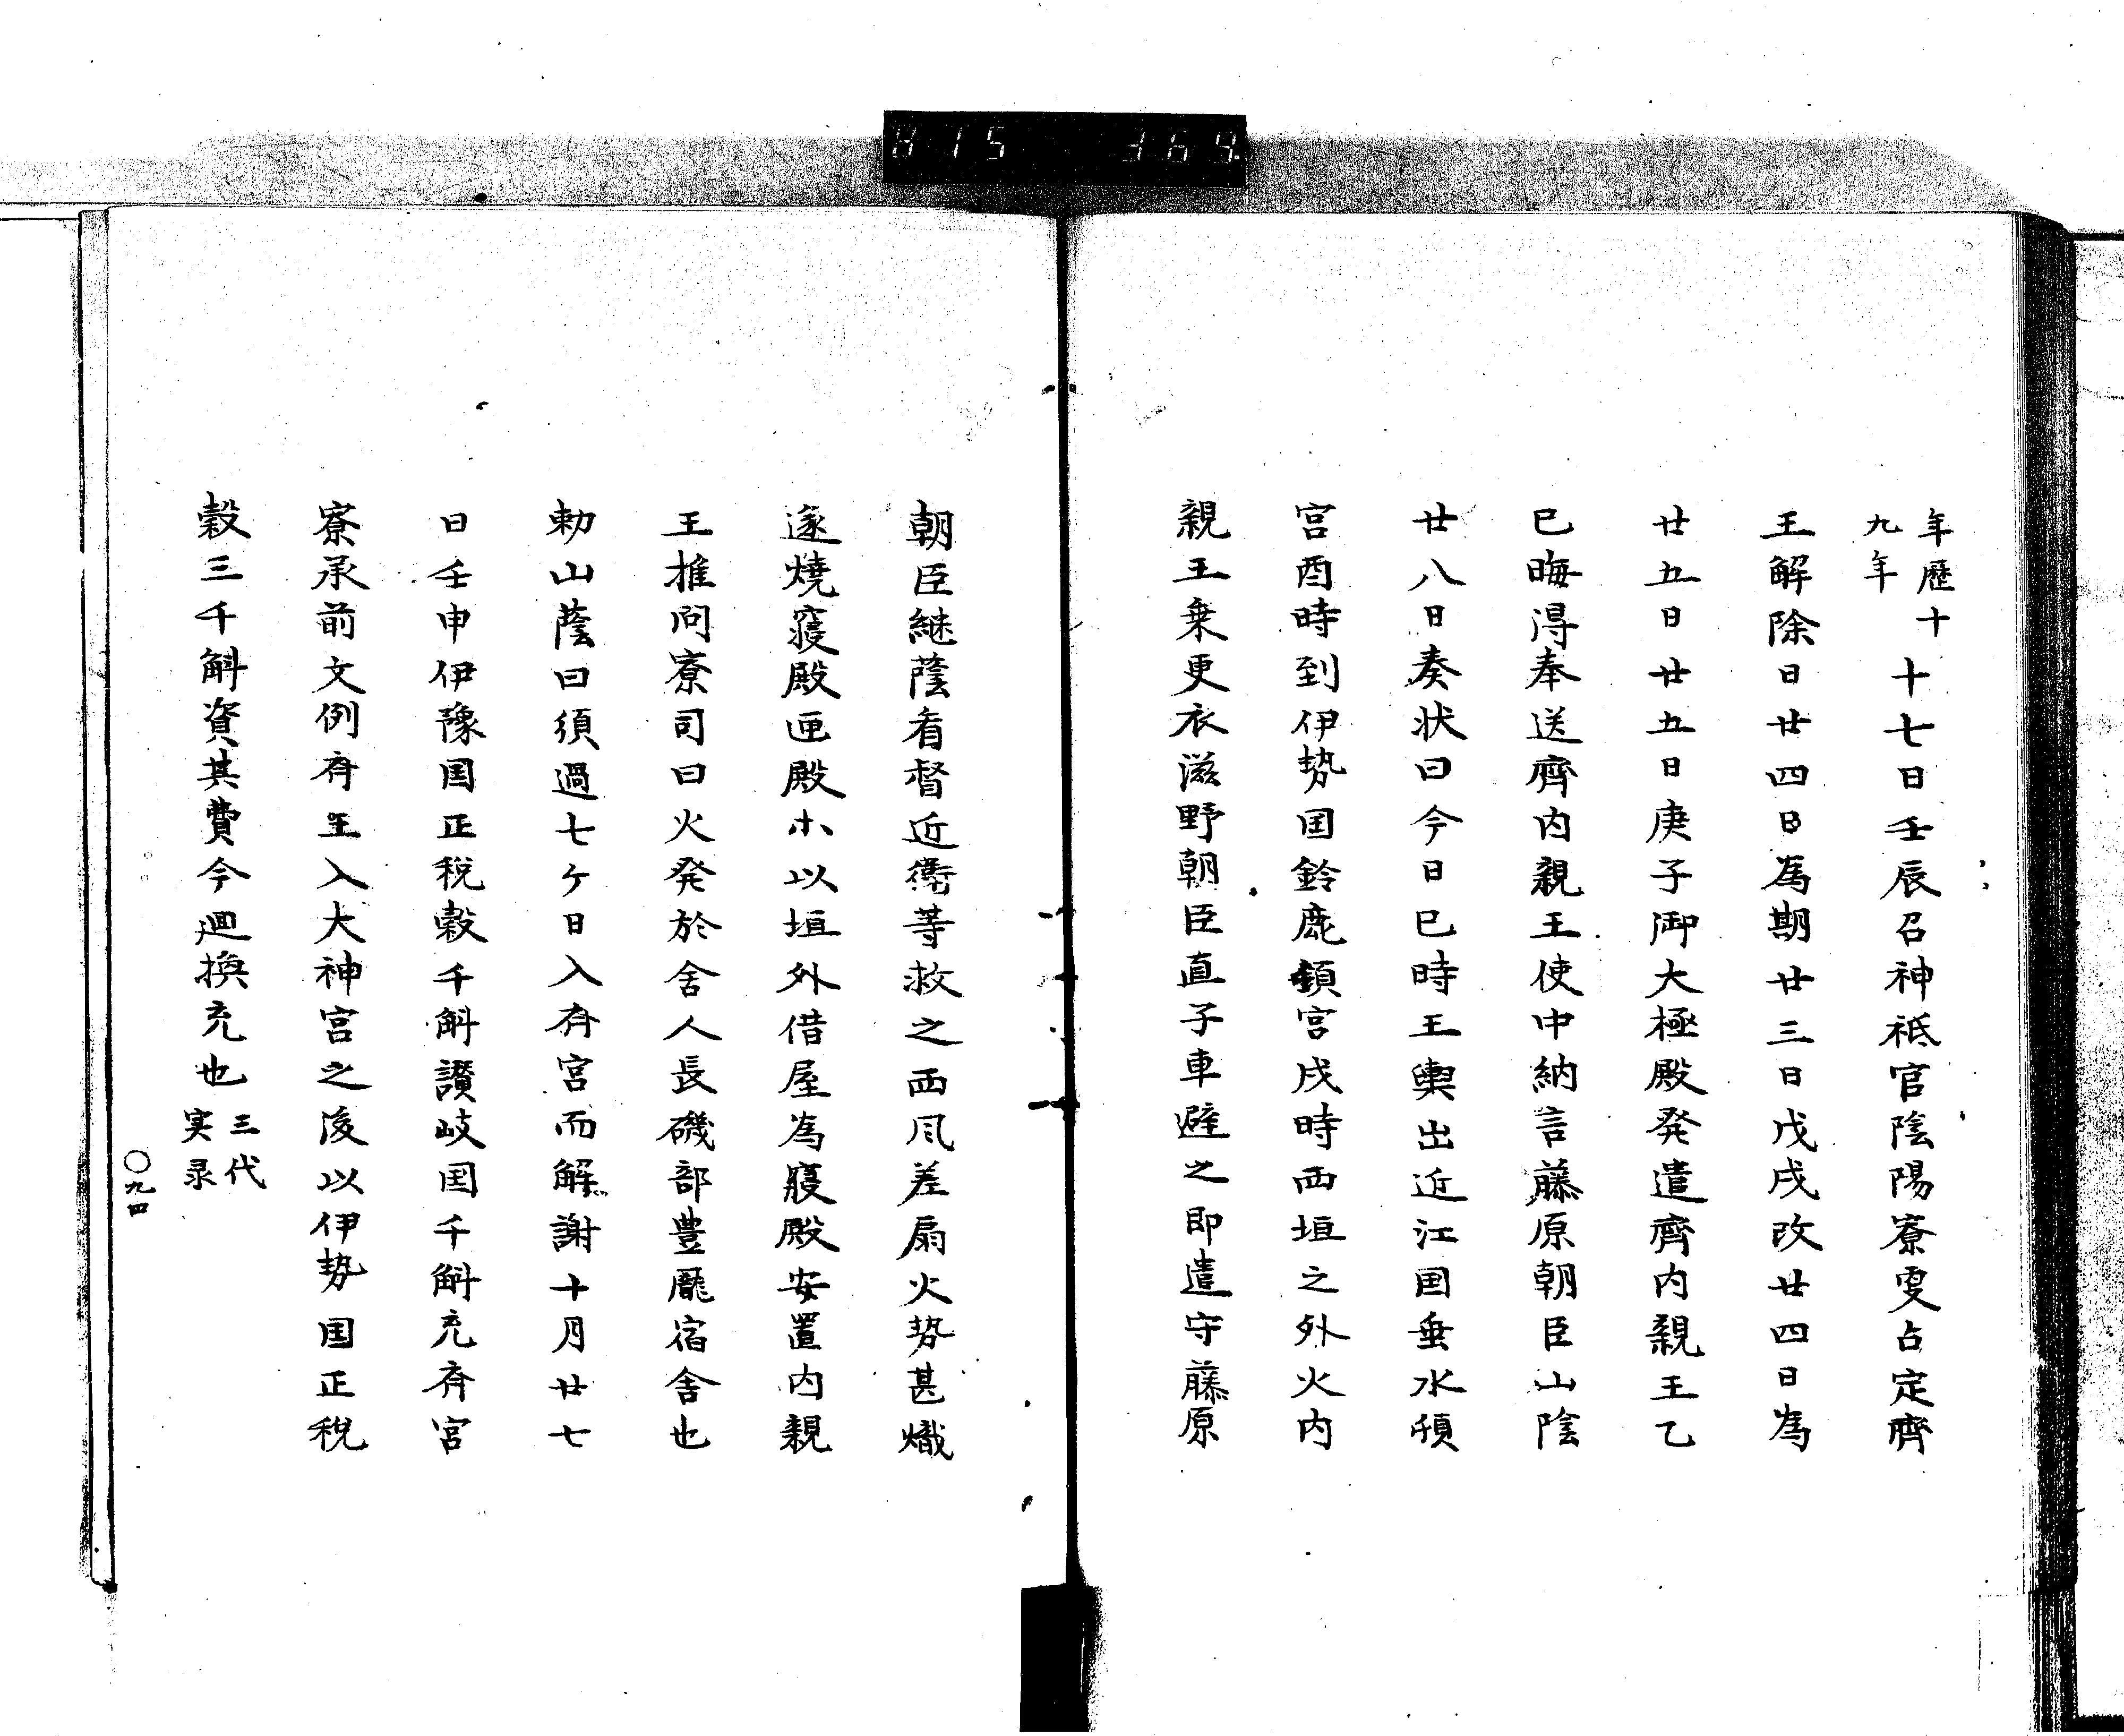 H15 369.
年歴十
九年
十七日壬辰召神祗官陰陽寮雯占定齊
王解除日廿四日為期廿三日戊戌改廿四日為
廿五日廿五日庚子御大極殿発遣齊内親王乙
巳晦淂奉送齊内親王使中納言藤原朝臣山陰
廿八日奏状曰今日巳時王輿出近江国垂水頓
宮酉時到伊勢国鈴鹿頓宮戌時西垣之外火内
親王乗更衣滋野朝臣直子車避之即遣守藤原
朝臣継蔭看督近衛等救之西風差扇火勢甚熾
遂焼寝殿匣殿木以垣外借屋為寝殿安置内親
王推问寮司曰火発於舎人長磯部豊厖宿舎也
勅山蔭曰須過七ケ日入斉宮而解謝十月廿七
日壬申伊豫国正税穀千斛讃岐国千斛充斉宮
寮承前文例斉王入大神宮之後以伊勢国正税
穀三千斛資其費今廻換充也
三代
実录
〇九四